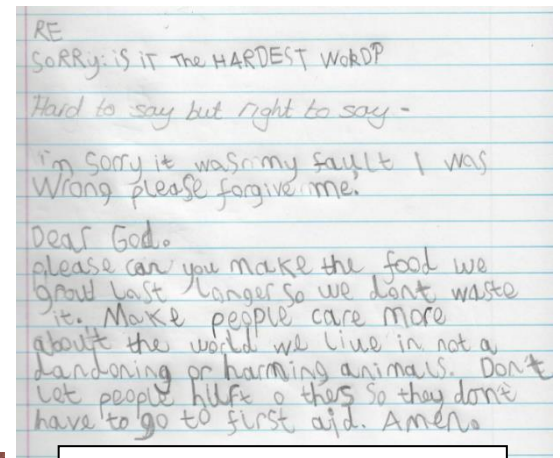 RE
SORRy: iS iT The HARDEST WORD?
Hard to say but right to say -
i'm Sorry it was my fault I was
Wrong please forgive me.
Dear God.
please can you make the food we
grow Last Longer So we dont waste
it. Make people care more
about the world we live in not a
dandoning or harming animals. Don't
Let people hurt o thers So they don't
have to go to first aid. Amen.